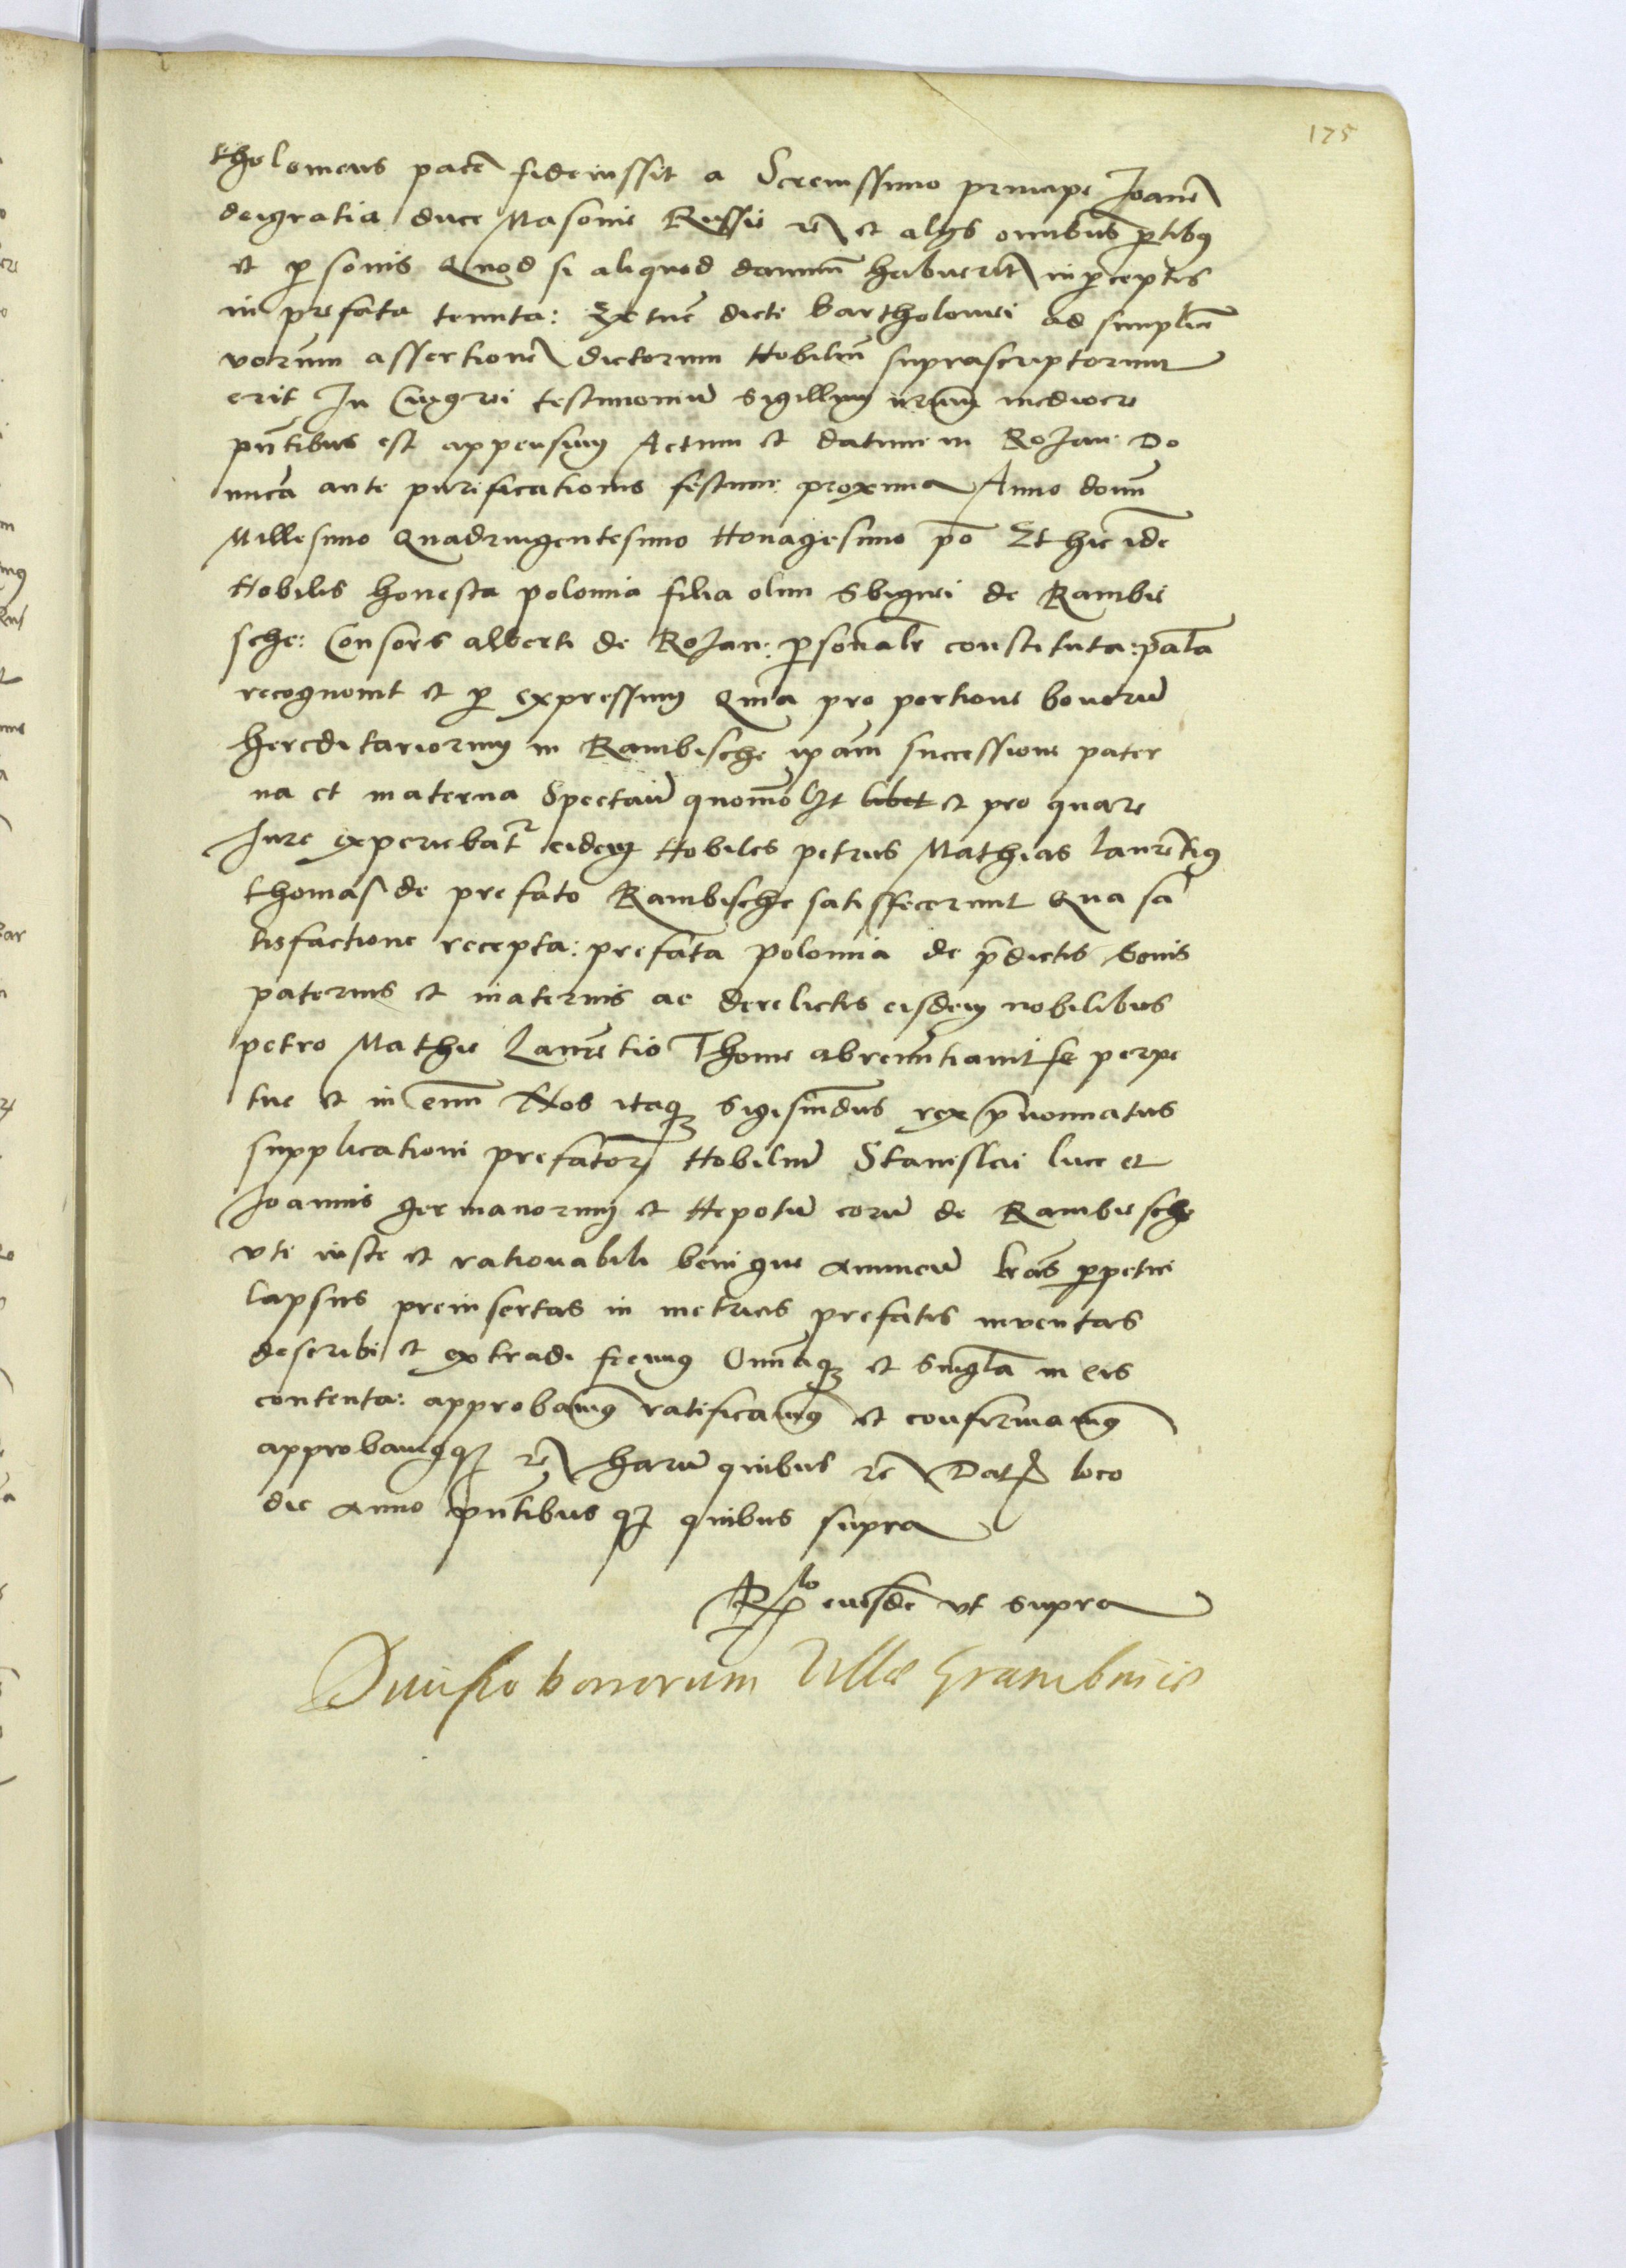 175
tholomeus pacē fideiussit a Serenissimo principe Joanē
dei gratia duce Masovie Russie rē et alijs omnibus ꝑtibꝯ
et ꝑsonis Quod si aliquod damnū habuerīt in ꝑceptis
in prefata tenuta: Ex tūc dicti Bartholomei ad simplicē
verorum assertionē dictorum Nobiliū suprascriptorum
erit In Cuiꝯ rei testimoniū Sigillum nrūm mediocre
pn̄tibus est appensum Actum et datum in Rozan: Do
mīca ante purificationis festum proxima Anno domī
Millesimo Quadringentesimo Nonagesimo pō Et hic idē
Nobilis honesta polonia filia olim Sbignei de Rambie
sche: Consors alberti de Rozan: ꝑsonalr̄ constituta: pal̄a
recognovit et ꝑ expressum Quīa pro portione bonorū
hereditariorum in Rambische ip̄am successione pater
na et materna Spectan̄ quomōlzt libet et pro quare
Jure experiebatr̄ eidem Nobiles petrus Mathias laurētiꝯ
thomas de prefato Rambische satisfecerunt Qua sa
tisfactione recepta: prefata polonia de p̄dictis bonis
paternis et maternis ac derelictis eisdem nobilibus
petro Mathie Laurētio Thome abrenūtiavit se perpe
tue et in evū Nos itaqꝫ Sigismūdus rex p̄nominatus
supplicationi prefatorꝝ Nobiliū Stanislai luce et
Joannis germanorum et Nepotū eorū de Rambiesche
vti iuste et rationabili benigne annuen̄ lr̄as ꝑpetui
lapsus preinsertas in metricis prefatis inventas
describi et extradi fecimꝯ Omniāqꝫ et singl̄a in eis
contenta: approbamꝯ ratificamꝯ et confirmamꝯ
approbamꝯqꝫ rē harū quibus rē Datꝭ loco
die anno pn̄tibus qꝫ quibus supra
Rlo eiusdē vt supra
Divisio bonorum Villæ Grambnicis